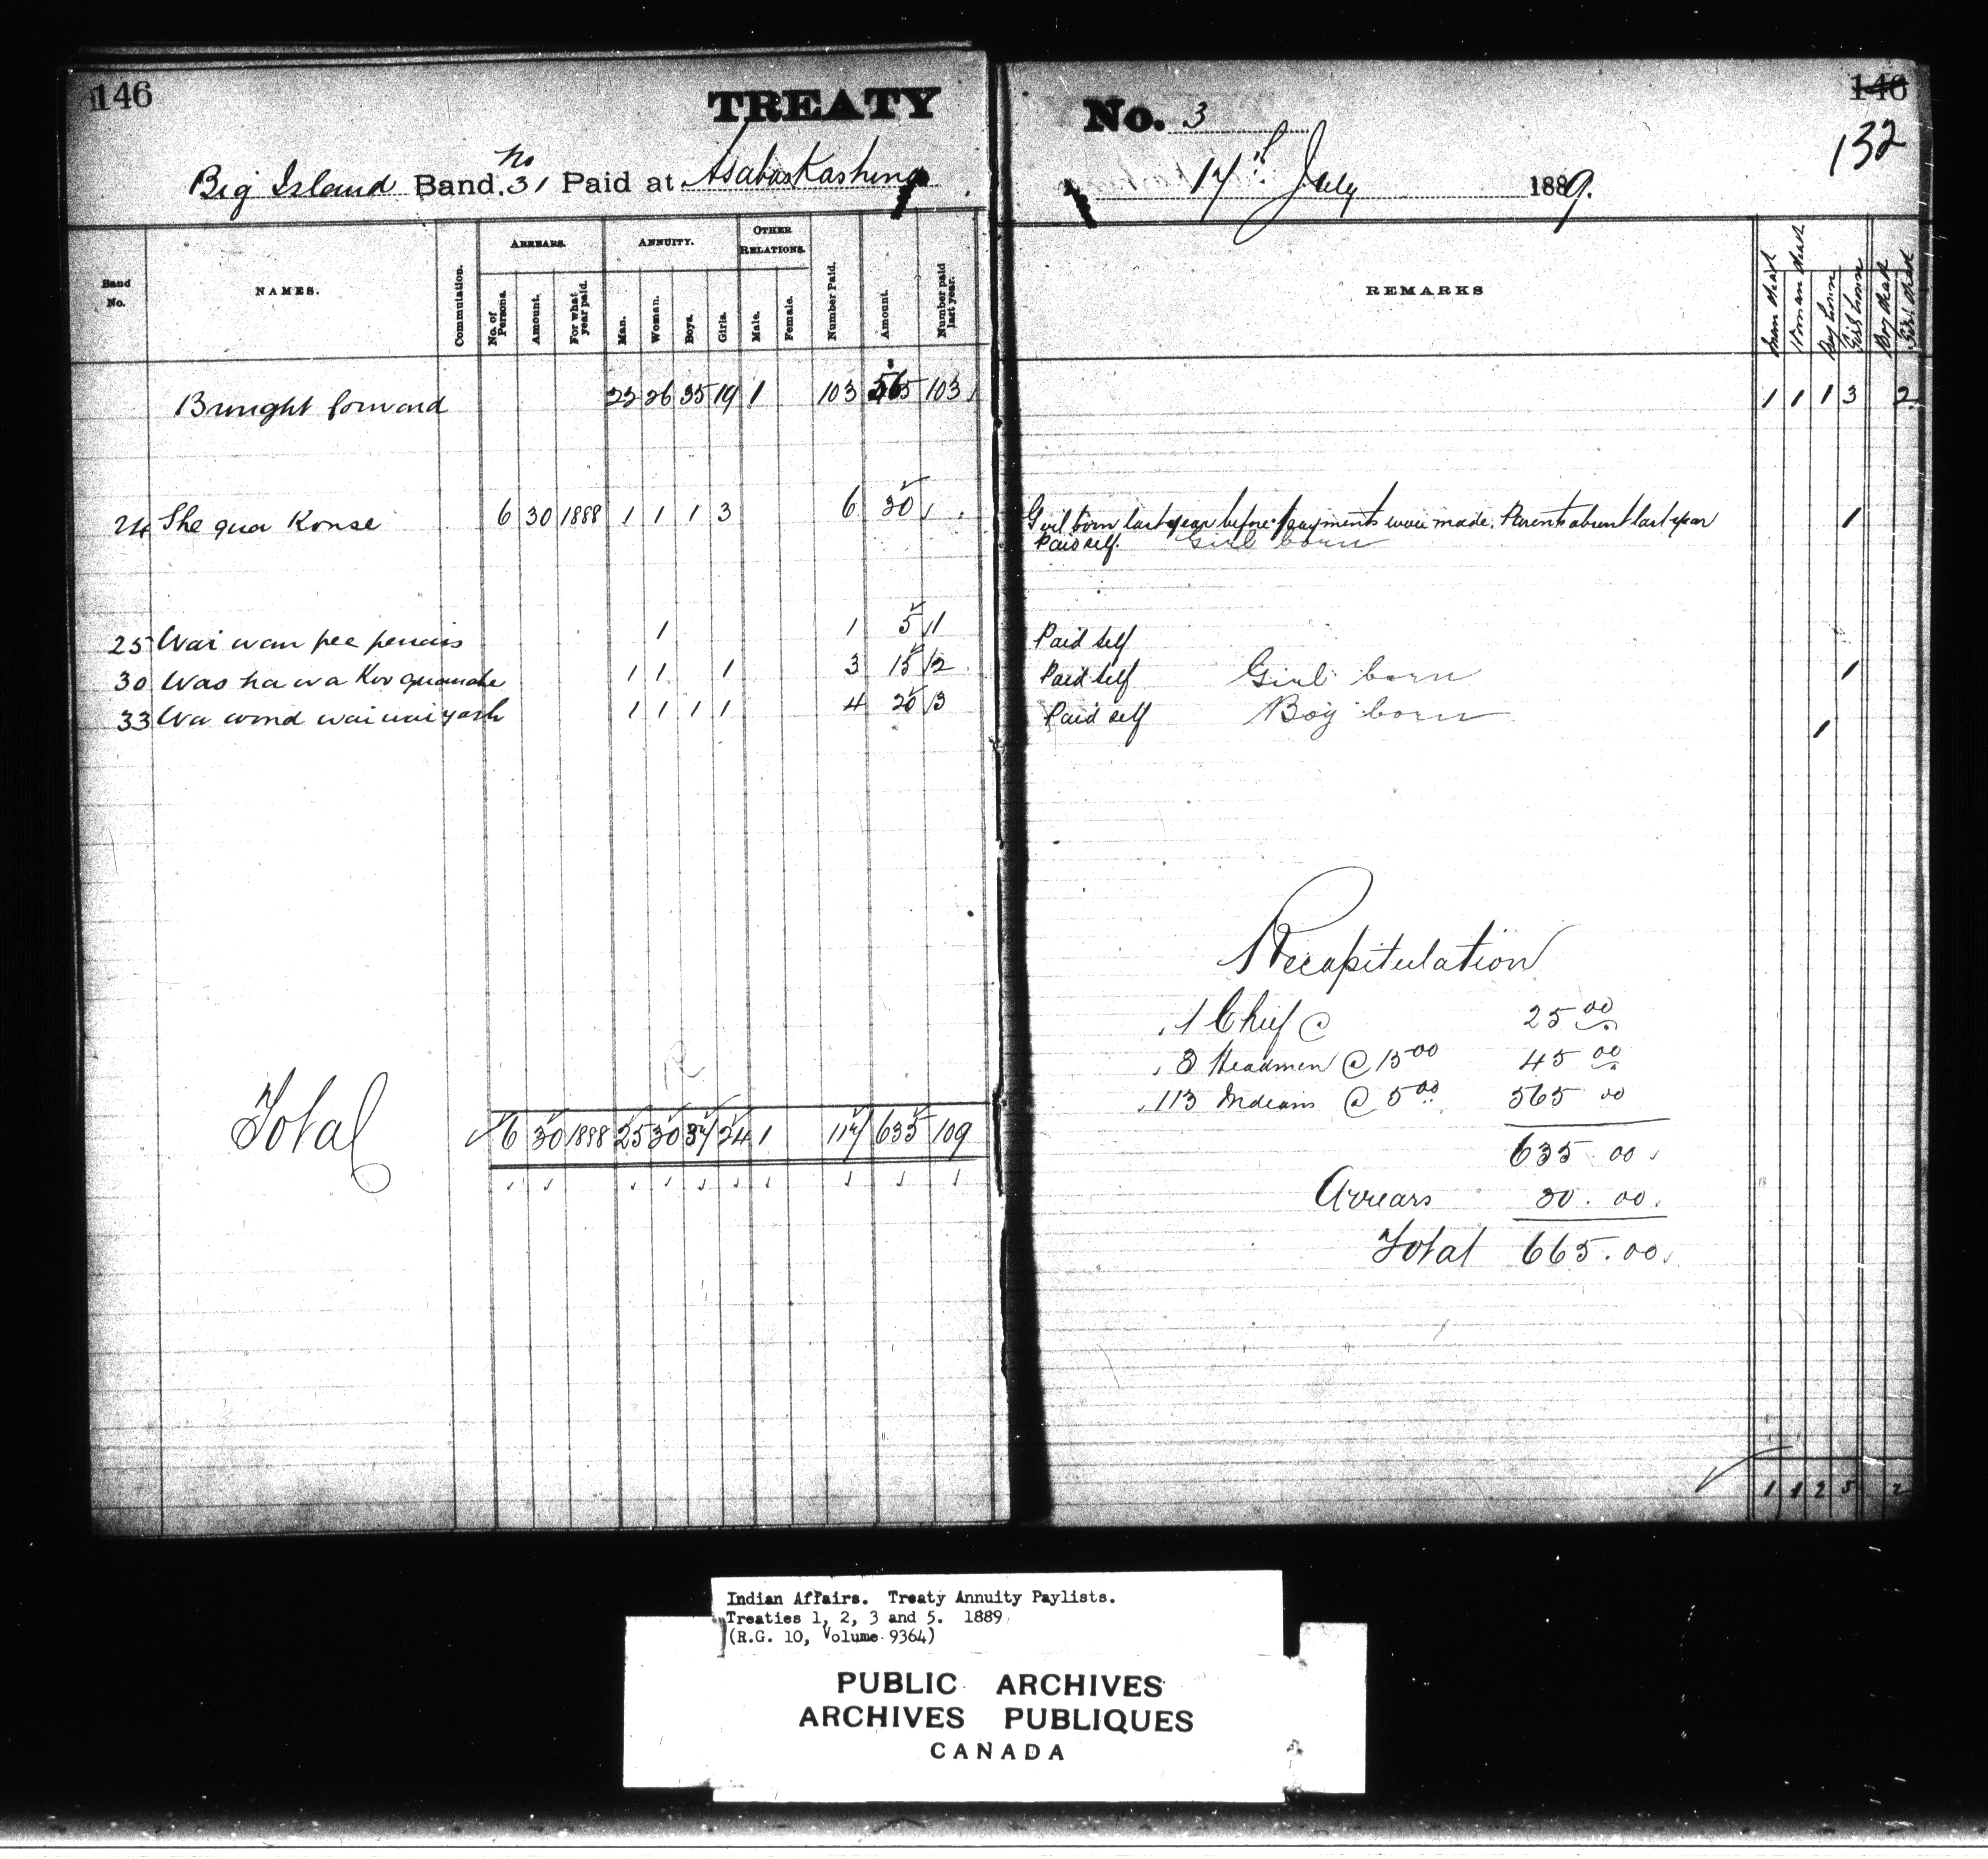 146
TREATY No. 3
146
132
Big Island Band. No 31 Paid at Assabaskashing
17th July 1889.
Band No.
NAMES.
Commutation.
ARREARS.
No. of Persons.
Amount.
For what year paid.
ANNUITY.
Man.
Woman.
Boys.
Girls.
OTHER RELATIONS.
Male.
Female.
Number Paid.
Amount.
Number paid last year.
REMARKS
Man dead
Woman dead
Boy born
Girl born
Boy dead
Girl dead
Brought forward 22 26 35 19 1 103 565 103 1 1 1 3 2
24 She qua Konse 6 30 1888 1 1 1 3 6 30 Girl born last year before payments were made. Parents absent last year 1
Paid self. Girl born
25 Wai wan pee penais 1 1 5 1 Paid self
30 Was ha wa Koo quamabe 1 1 1 3 15 2 Paid self Girl born 1
33 Wa wond wai wai yash 1 1 1 1 4 20 3 Paid self Boy born 1
Recapitulation
1 Chief @ 25 00
3 Headmen @ 15 00 45 00
113 Indians @ 5 00 565 00
635.00
Arrears 30.00
Total 665.00
Total 6 30 1888 25 30 37 24 1 117 635 109
1 1 2 5 2
Indian Affairs. Treaty Annuity Paylists.
Treaties 1, 2, 3 and 5. 1889
(R.G. 10, Volume 9364)
PUBLIC ARCHIVES
ARCHIVES PUBLIQUES
CANADA